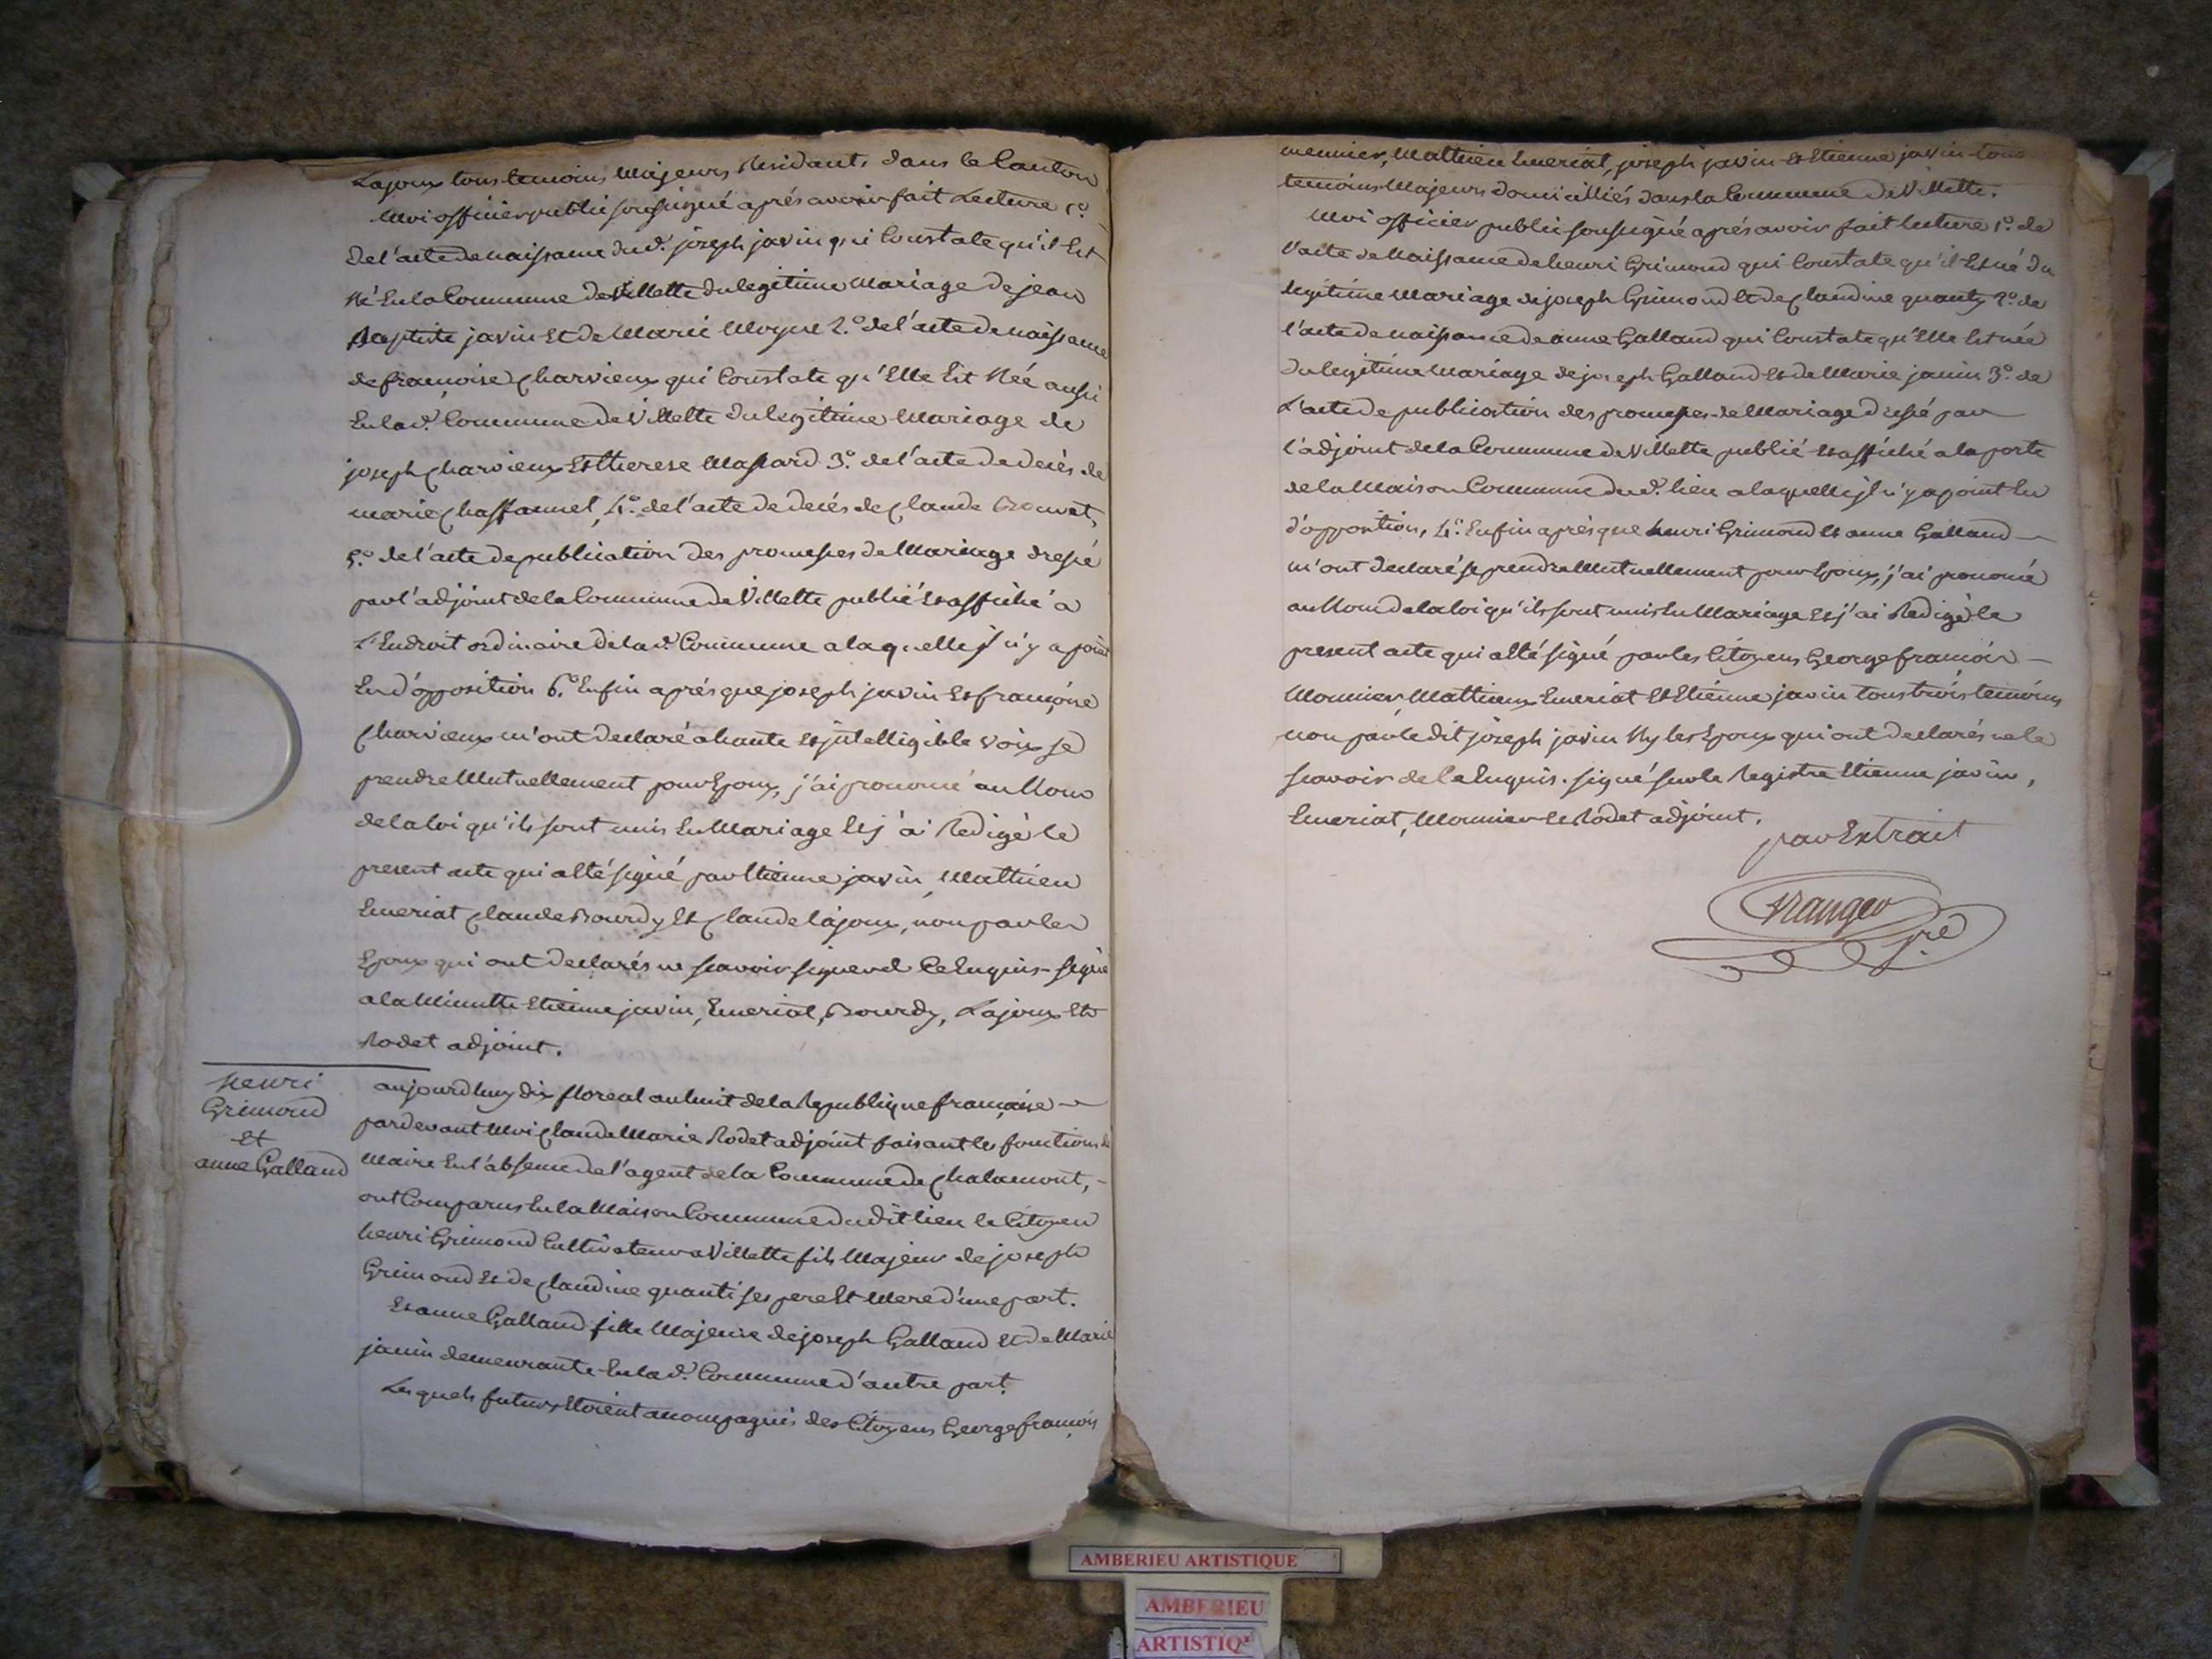 Lajoux tous temoins Majeurs Residants dans le Canton
Moi officier public soussigné aprés avoir fait Lecture 1.°
de l'acte de naissance dud. joseph javin qui Constate qu'il Est
Né En la Commune de Villette du legitime Mariage de jean
Baptiste javin Et de Marie Moyne 2.° de l'acte de naissance
de francoise Charvieux qui Constate qu'Elle Est Née aussi
En lad. Commune de Villette du legitime Mariage de
joseph Charvieux Et therese Massard 3.° de l'acte de decés de
marie Chaffannet, 4.° de l'acte de decés de Claude Bouvet,
5.° de l'acte de publication des promesses de Mariage dressé
par l'adjoint de la Commune de Villette publié Et affiché a
L'Endroit ordinaire de lad. Commune a laquelle jl n'y a point
Eu d'opposition 6.° Enfin aprés que joseph javin Et francoise
Charvieux m'ont declaré a haute Et jntelligible voix se
prendre Mutuellement pour Epoux, j'ai prononcé au Nom
de la loi qu'ils sont unis En Mariage Et j'ai Redigé le
present acte qui a Eté signé par Etienne javin, Mathieu
Emeriat Claude Bourdy Et Claude lajoux, non par les
Epoux qui ont declarés ne scavoir signer de Ce Enquis - signé
a la Minutte Etienne javin, Emeriat, Bourdy, Lajoux Et
Rodet adjoint.
henri
Grimond
Et
anne Galland
aujourdhuy dix floreal an huit de la Republique francaise
pardevant Moi Claude Marie Rodet adjoint faisant les fonctions de
Maire En l'absence de l'agent de la Commune de Chalamont,
ont Comparus En la Maison Commune dudit lieu le Citoyen
henri Grimond Cultivateur a Villette fils Majeur de joseph
Grimond Et de Claudine quanti ses pere Et Mere d'une part.
Et anne Galland fille Majeure de joseph Galland Et de Marie
janin demeurante En lad. Commune d'autre part.
Lesquels futurs Etoient accompagnés des Citoyens George francois
meunier, Mathieu Emeriat, joseph javin Et Etienne javin tous
temoins Majeurs domicilliés dans la Commune de Villette.
Moi officier public soussigné aprés avoir fait lecture 1.° de
l'acte de Naissance de henri Grimond qui Constate qu'il Est né du
legitime Mariage de joseph Grimond Et de Claudine quanty 2.° de
l'acte de naissance de anne Galland qui Constate qu'Elle Est née
du legitime Mariage de joseph Galland Et de Marie janin 3.° de
L'acte de publication des promesses de Mariage dressé par
l'adjoint de la Commune de Villette publié Et affiché a la porte
de la Maison Commune dud. lieu a laquelle jl n'y a point Eu
d'opposition, 4.° Enfin aprés que henri Grimond Et anne Galland
m'ont declaré se prendre Mutuellement pour Epoux, j'ai prononcé
au Nom de la loi qu'ils sont unis En Mariage Et j'ai Redigé le
present acte qui a Eté signé par les Citoyens George francois
Mounier, Mathieux Emeriat Et Etienne javin tous trois temoins
non par ledit joseph javin Ny les Epoux qui ont declarés ne le
scavoir de Ce Enquis. signé sur le Registre Etienne javin,
Emeriat, Mounier Et Rodet adjoint.
par Extrait
AMBERIEU ARTISTIQUE
AMBERIEU
ARTISTIQ